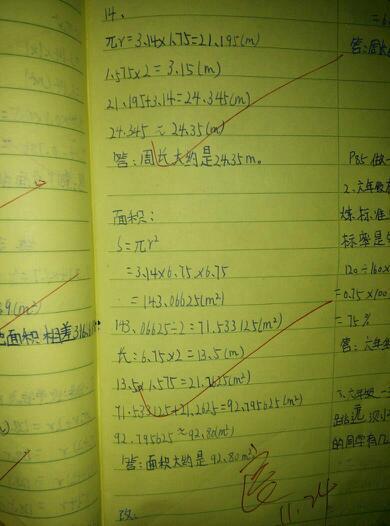 14、
πr=3.14×6.75=21.195(m)
1.575×2=3.15(m)
21.195+3.14=24.345(m)
24.345≈24.35(m)
答：周长大约是24.35m。
面积：
S=πr²
=3.14×6.75×6.75
=143.06625(m²)
143.06625÷2=71.533125(m²)
长：6.75×2=13.5(m)
13.5×1.575=21.2625(m²)
71.533125+21.2625=92.795625(m²)
92.795625≈92.80(m²)
答：面积大约是92.80m²
改、
11.24
69(m²)
面积相差316
答：周长
P85 做一
2、六年级
炼标准
标率是
120÷160×
=0.75×100
=75%
答：六年级
3、六年级一
的同学有几